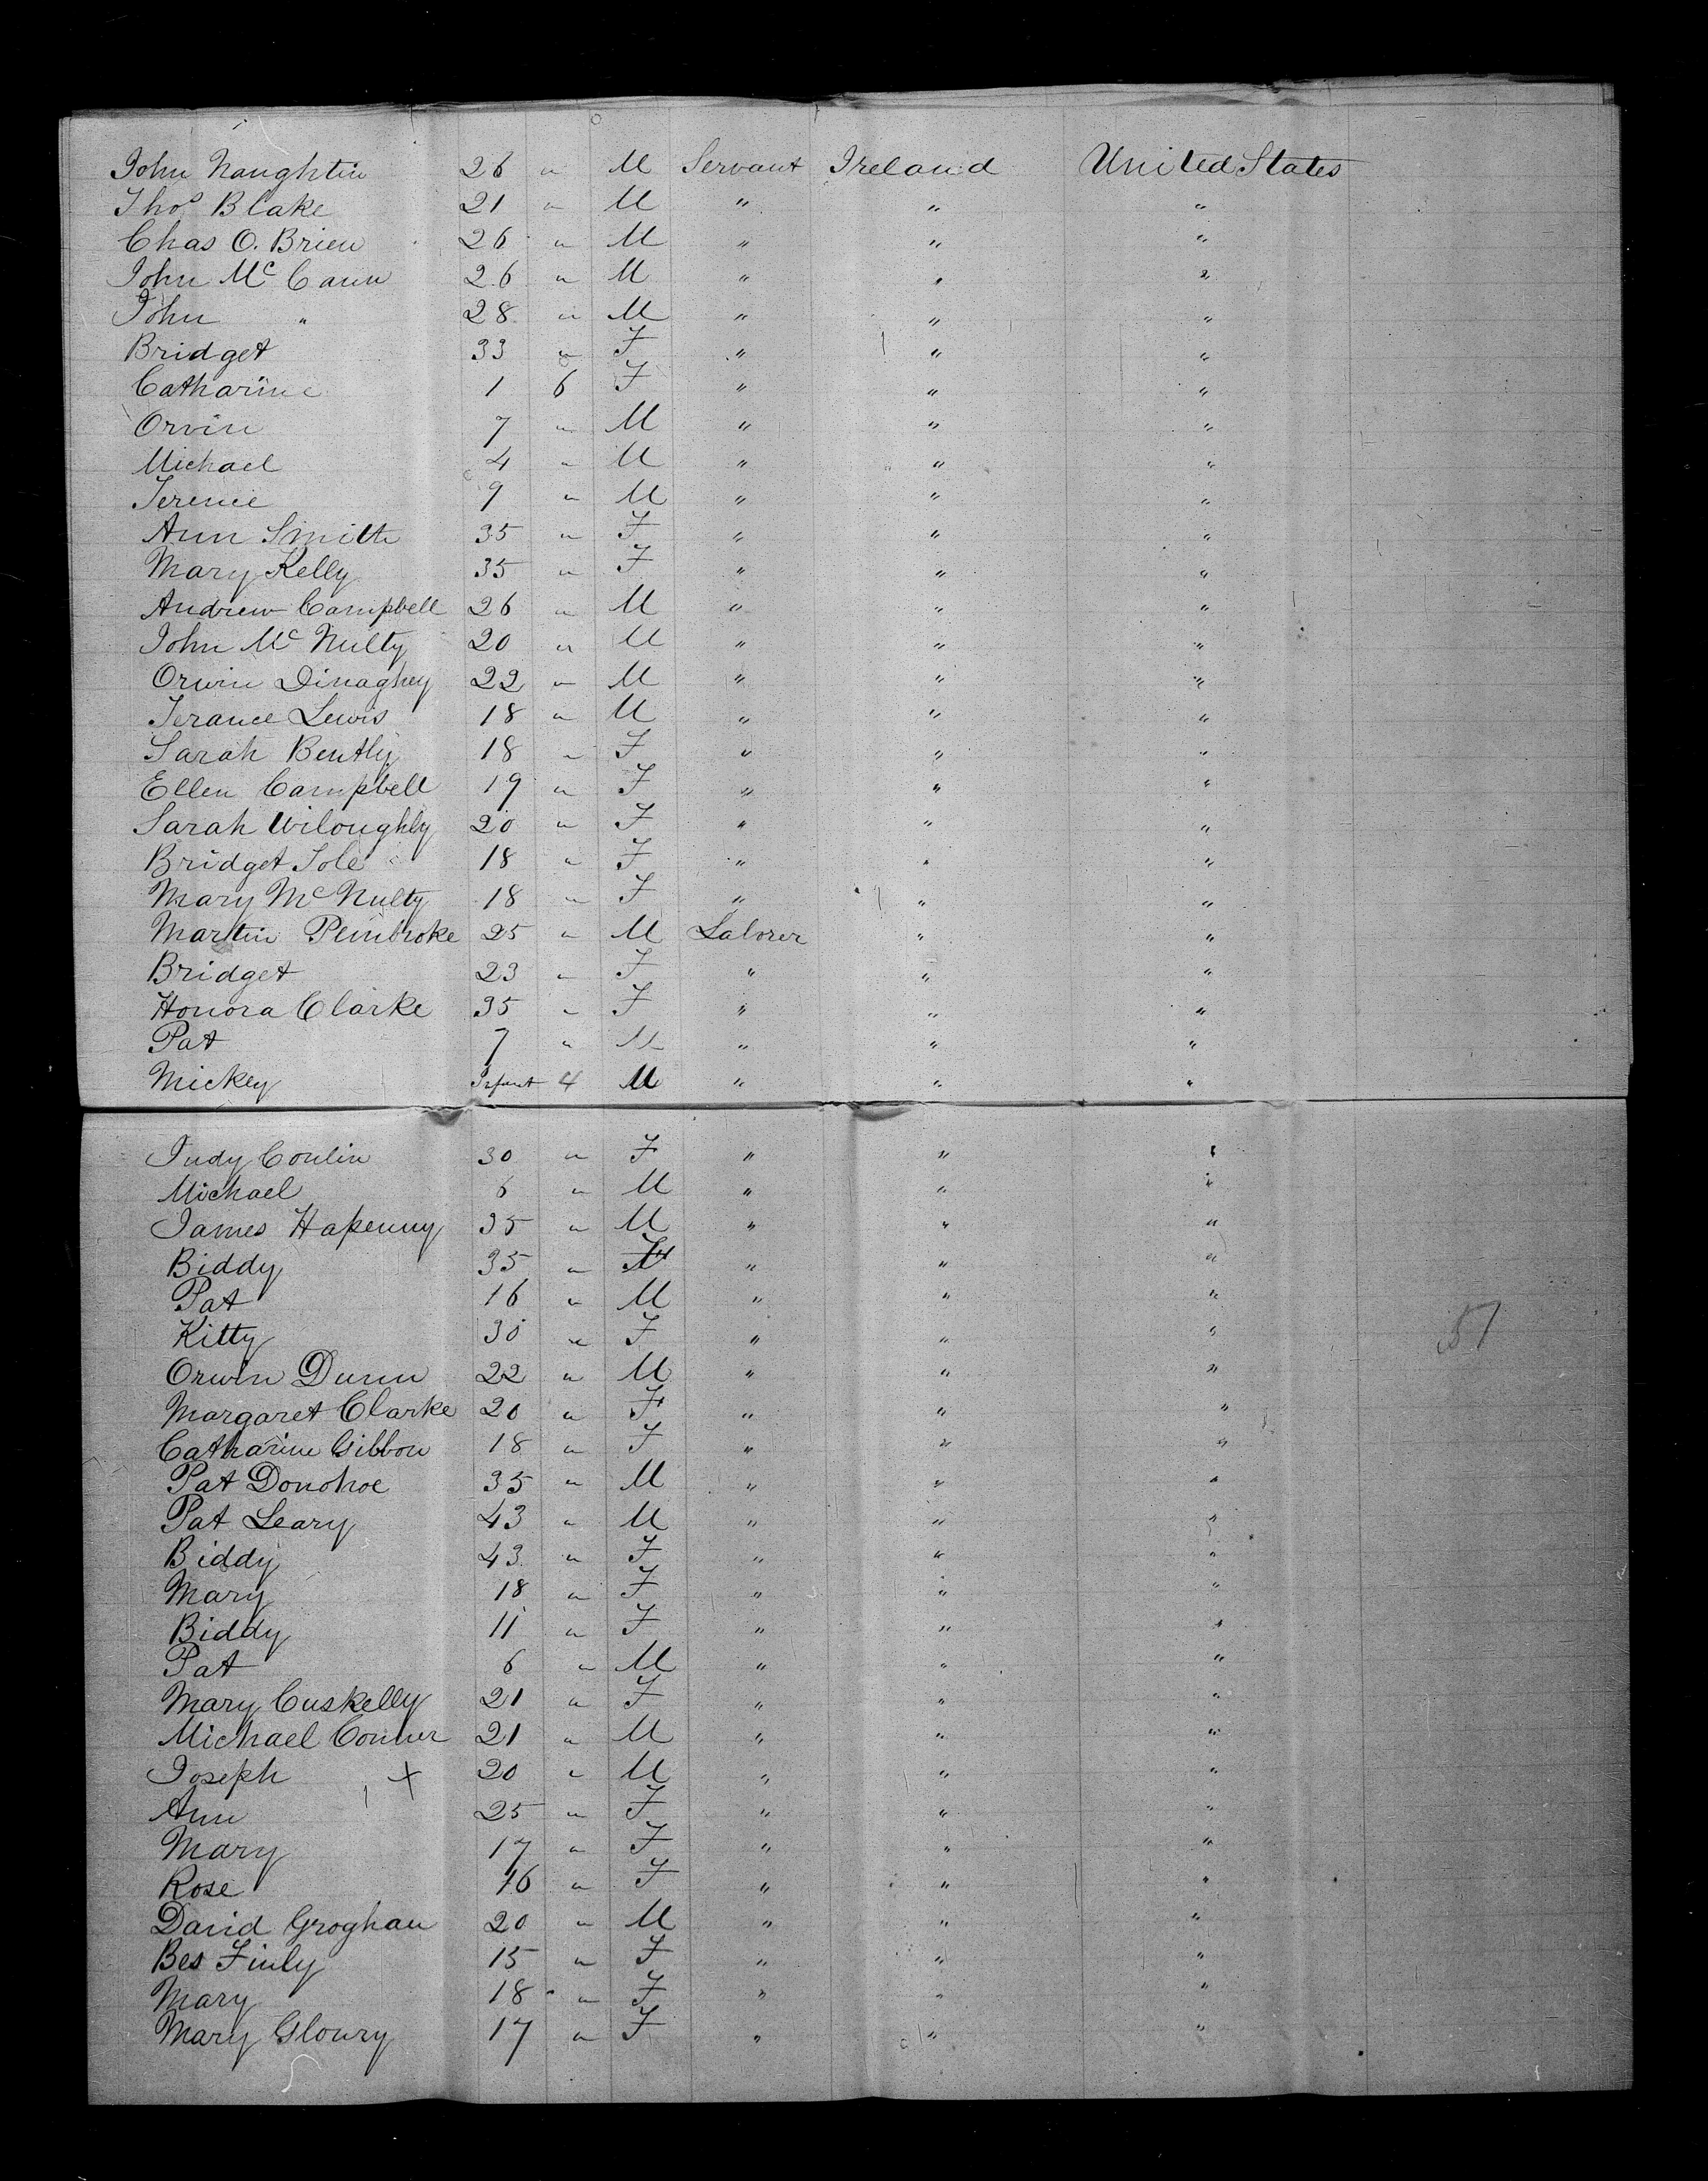 John Naughtin 26 " M Servant Ireland United States
Thos Blake 21 " M " " "
Chas O. Brien 26 " M " " "
John Mc Cann 26 " M " " "
John " 28 " M " " "
Bridget 33 " F " " "
Catharine 1 6 F " " "
Orvin 7 " M " " "
Michael 4 " M " " "
Terence 9 " M " " "
Ann Smith 35 " F " " "
Mary Kelly 35 " F " " "
Andrew Campbell 26 " M " " "
John Mc Nulty 20 " M " " "
Orwin Dinaghey 22 " M " " "
Terance Lewis 18 " M " " "
Sarah Bently 18 " F " " "
Ellen Campbell 19 " F " " "
Sarah Wiloughly 20 " F " " "
Bridget Tole 18 " F " " "
Mary Mc Nulty 18 " F " " "
Martin Pembroke 25 " M Laborer " "
Bridget 23 " F " " "
Honora Clarke 35 " F " " "
Pat 7 " M " " "
Mickey Infant 4 M " " "
Judy Conlin 30 " F " " "
Michael 6 " M " " "
James Hapenny 35 " M " " "
Biddy 35 " F " " "
Pat 16 " M " " "
Kitty 30 " F " " "
Orwin Dunn 22 " M " " "
Margaret Clarke 20 " F " " "
Catharine Gibbon 18 " F " " "
Pat Donohoe 35 " M " " "
Pat Leary 43 " M " " "
Biddy 43 " F " " "
Mary 18 " F " " "
Biddy 11 " F " " "
Pat 6 " M " " "
Mary Cuskelly 21 " F " " "
Michael Conner 21 " M " " "
Joseph X 20 " M " " "
Ann 25 " F " " "
Mary 17 " F " " "
Rose 16 " F " " "
David Groghan 20 " M " " "
Bes Finly 15 " F " " "
Mary 18 " F " " "
Mary Gloury 17 " F " " "
51